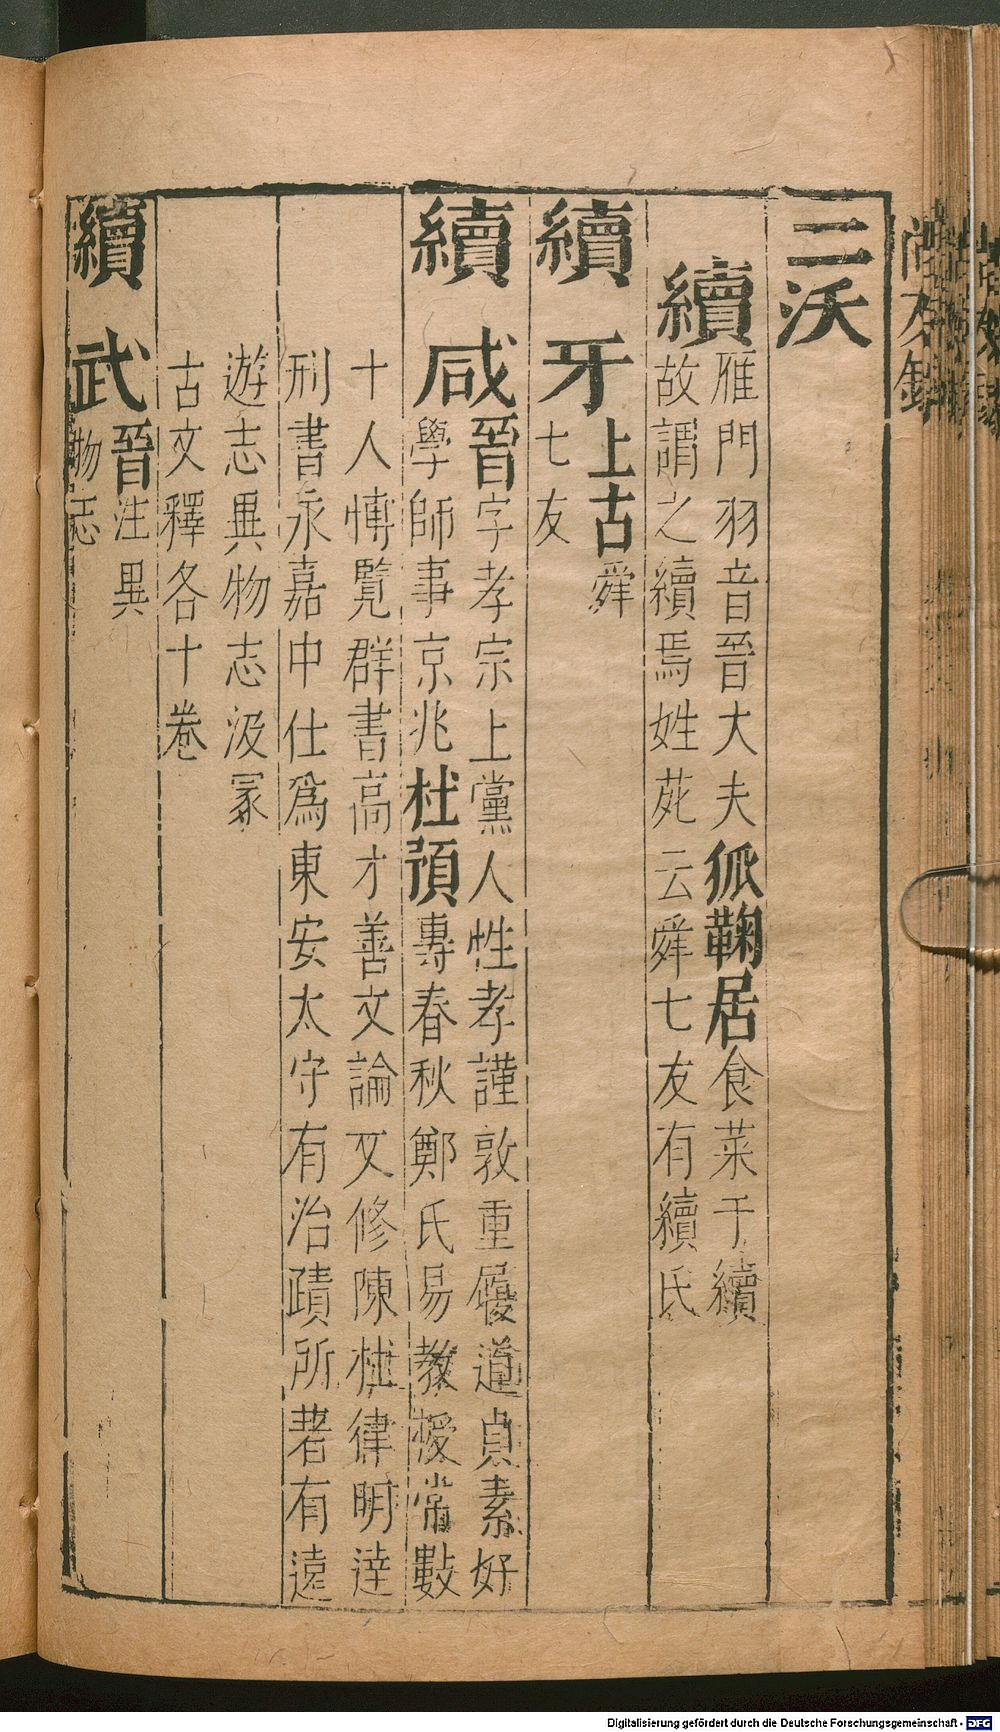 三沃
續
雁門羽音晉大夫狐鞠居食菜于續
故謂之續焉姓苑云舜七友有續氏
續牙上古舜
七友
續咸晉字孝宗上黨人性孝謹敦重履道貞素好
學師事京兆杜預專春秋鄭氏易教授常數
十人愽覧群書高才善文論又修陳杜律明達
刑書永嘉中仕爲東安太守有治蹟所著有遠
遊志異物志汲冡
古文釋各十卷
續武晉注異
物志
Digitalisierung gefördert durch die Deutsche Forschungsgemeinschaft - DFG